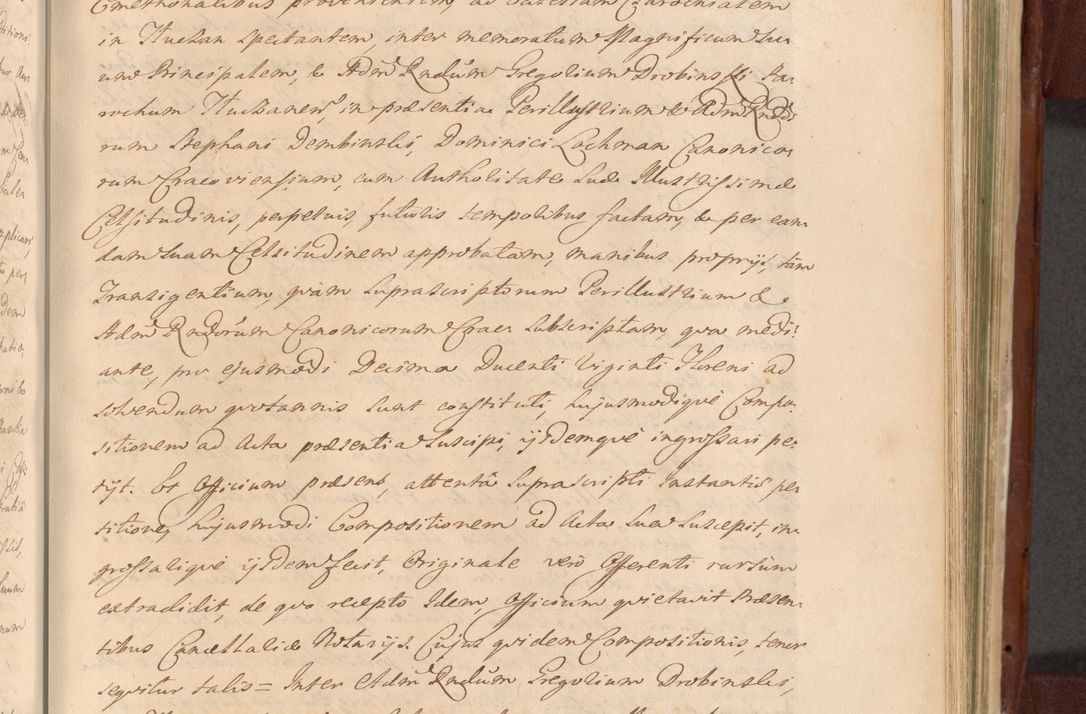 Cmethonalibus provenientem ad Ecclesiam Parochialem
in Tluczan spectantem, inter memoratum Magnificum Su-
um Principalem, & Admd Rndum Gregorium Drobinski Pa-
rochum Tluczanens, in præsentia Perillustrium & Admd Rndo-
rum Stephani Dembinski, Dominici Lochman Canonico-
rum Cracoviensium, cum Authoritate Suæ Illustrissimæ
Celsitudinis, perpetuis, futuris temporibus factam, & per ean-
dam Suam Celsitudinem approbatam, manibus proprijs, tam
Transigentium, quam Suprascriptorum Perillustrium &
Admd Rndorum Canonicorum Crac: Subscriptam, qua medi-
ante, pro ejusmodi Decima Ducenti Viginti Floreni ad
solvendum quotannis sunt constituti, hujusmodique Compo-
sitionem ad Acta præsentia Suscipi, ijsdemque ingrossari pe-
tijt. Et Officium præsens, attentâ Suprascripti Instantis pe-
titione, hujusmodi Compositionem ad Acta Sua Suscepit, in-
grossarique ijsdem fecit, Originale verò Offerenti rursum
extradidit, de quo recepto Idem, Officium quietavit Præsen-
tibus Cancellariæ Notarijs. Cujus quidem Compositionis, tenor
sequitur talis = Inter Admd Rndum Gregorium Drobinski,